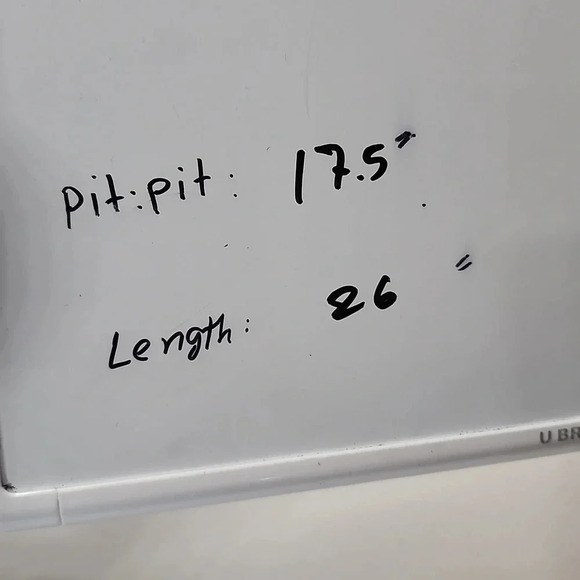 Pit:pit: 17.5"
Length: 26 "
U BR